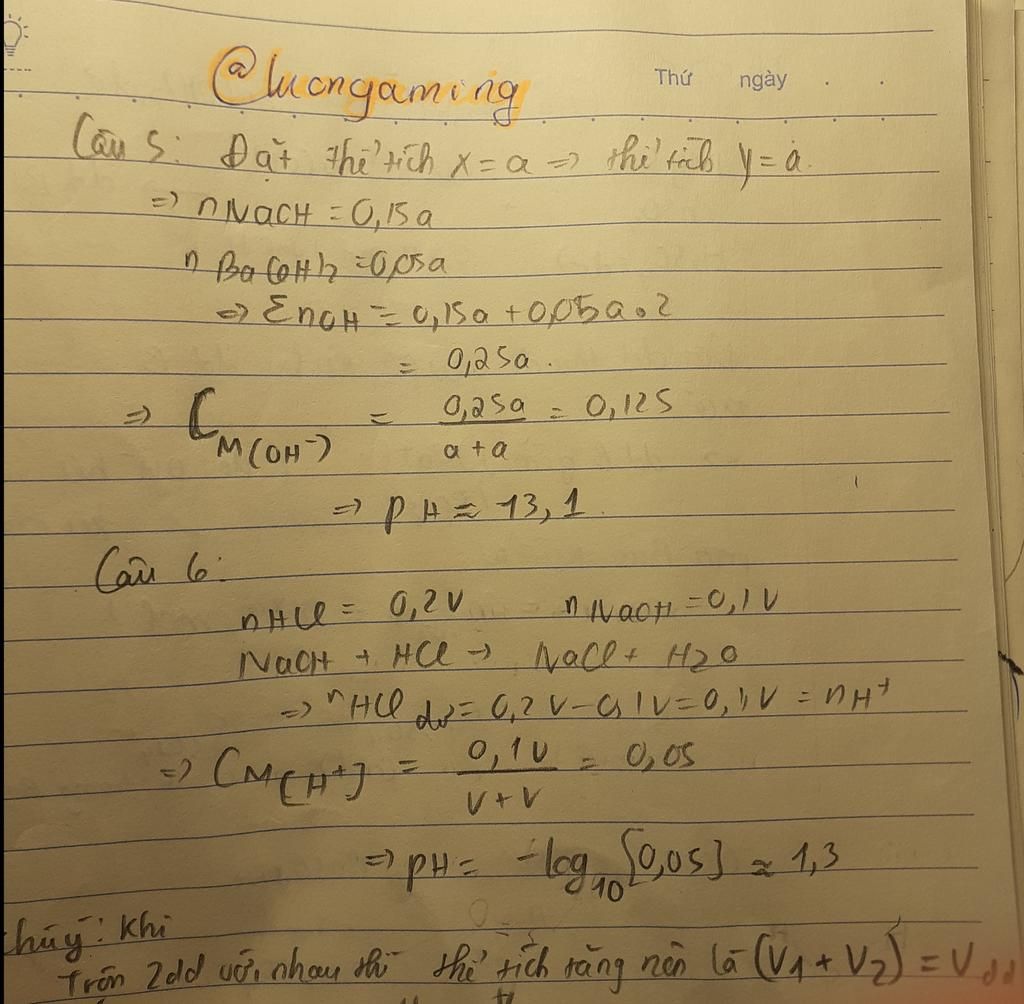 @luongaming
Thứ ngày . .
Câu 5: Đặt thể tích x = a => thể tích y = a.
=> nNaOH = 0,15a
n Ba(OH)2 = 0,05a
=> ΣnOH = 0,15a + 0,05a.2
= 0,25a.
=> CM(OH-) = 0,25a / a + a = 0,125
=> pH ≈ 13,1
Câu 6:
nHCl = 0,2V nNaOH = 0,1V
NaOH + HCl -> NaCl + H2O
=> nHCl dư = 0,2V - 0,1V = 0,1V = nH+
=> CM[H+] = 0,1V / V + V = 0,05
=> pH = -log10[0,05] ≈ 1,3
chú ý: Khi
trộn 2dd với nhau thì thể tích tăng nên là (V1 + V2) = Vdd